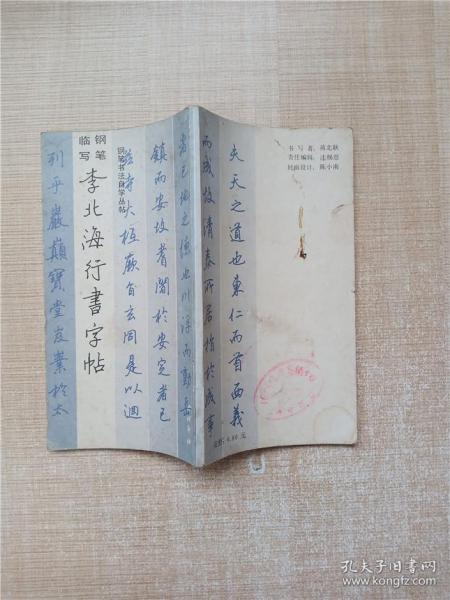 钢笔
临写
李北海行書字帖
钢笔书法自学丛帖
列乎巖巔寶堂岌業於太
夫天之道也東仁而首西義
而成故清泰所居指於成事
者已倣之德也川浮而動岳
鎮而安故耆闍於安定者已
大極厥旨玄同是以迴
书写者：
责任编辑：
封面设计：陈小南
孔夫子旧书网
www.kongfz.com